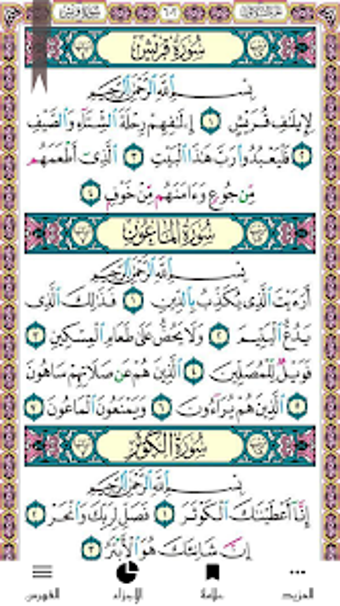 سورة قريش
بسم الله الرحمن الرحيم
لِإِيلَٰفِ قُرَيْشٍ ١ إِۦلَٰفِهِمْ رِحْلَةَ ٱلشِّتَآءِ وَٱلصَّيْفِ
٢ فَلْيَعْبُدُوا۟ رَبَّ هَٰذَا ٱلْبَيْتِ ٣ ٱلَّذِىٓ أَطْعَمَهُم
مِّن جُوعٍ وَءَامَنَهُم مِّنْ خَوْفٍۭ ٤
سُورَةُ المَاعُونِ
بسم الله الرحمن الرحيم
أَرَءَيْتَ ٱلَّذِى يُكَذِّبُ بِٱلدِّينِ ١ فَذَٰلِكَ ٱلَّذِى
يَدُعُّ ٱلْيَتِيمَ ٢ وَلَا يَحُضُّ عَلَىٰ طَعَامِ ٱلْمِسْكِينِ ٣
فَوَيْلٌ لِّلْمُصَلِّينَ ٤ ٱلَّذِينَ هُمْ عَن صَلَاتِهِمْ سَاهُونَ
٥ ٱلَّذِينَ هُمْ يُرَآءُونَ ٦ وَيَمْنَعُونَ ٱلْمَاعُونَ ٧
سُورَةُ الكَوْثَرِ
بسم الله الرحمن الرحيم
إِنَّآ أَعْطَيْنَٰكَ ٱلْكَوْثَرَ ١ فَصَلِّ لِرَبِّكَ وَٱنْحَرْ ٢
إِنَّ شَانِئَكَ هُوَ ٱلْأَبْتَرُ ٣
المزيد علامة الأجزاء الفهرس